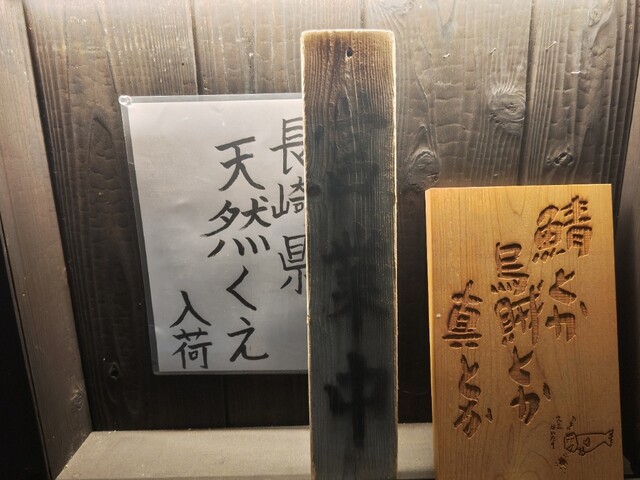 長崎県
天然くえ
入荷
営業中
鯖とか
烏賊とか
真とか